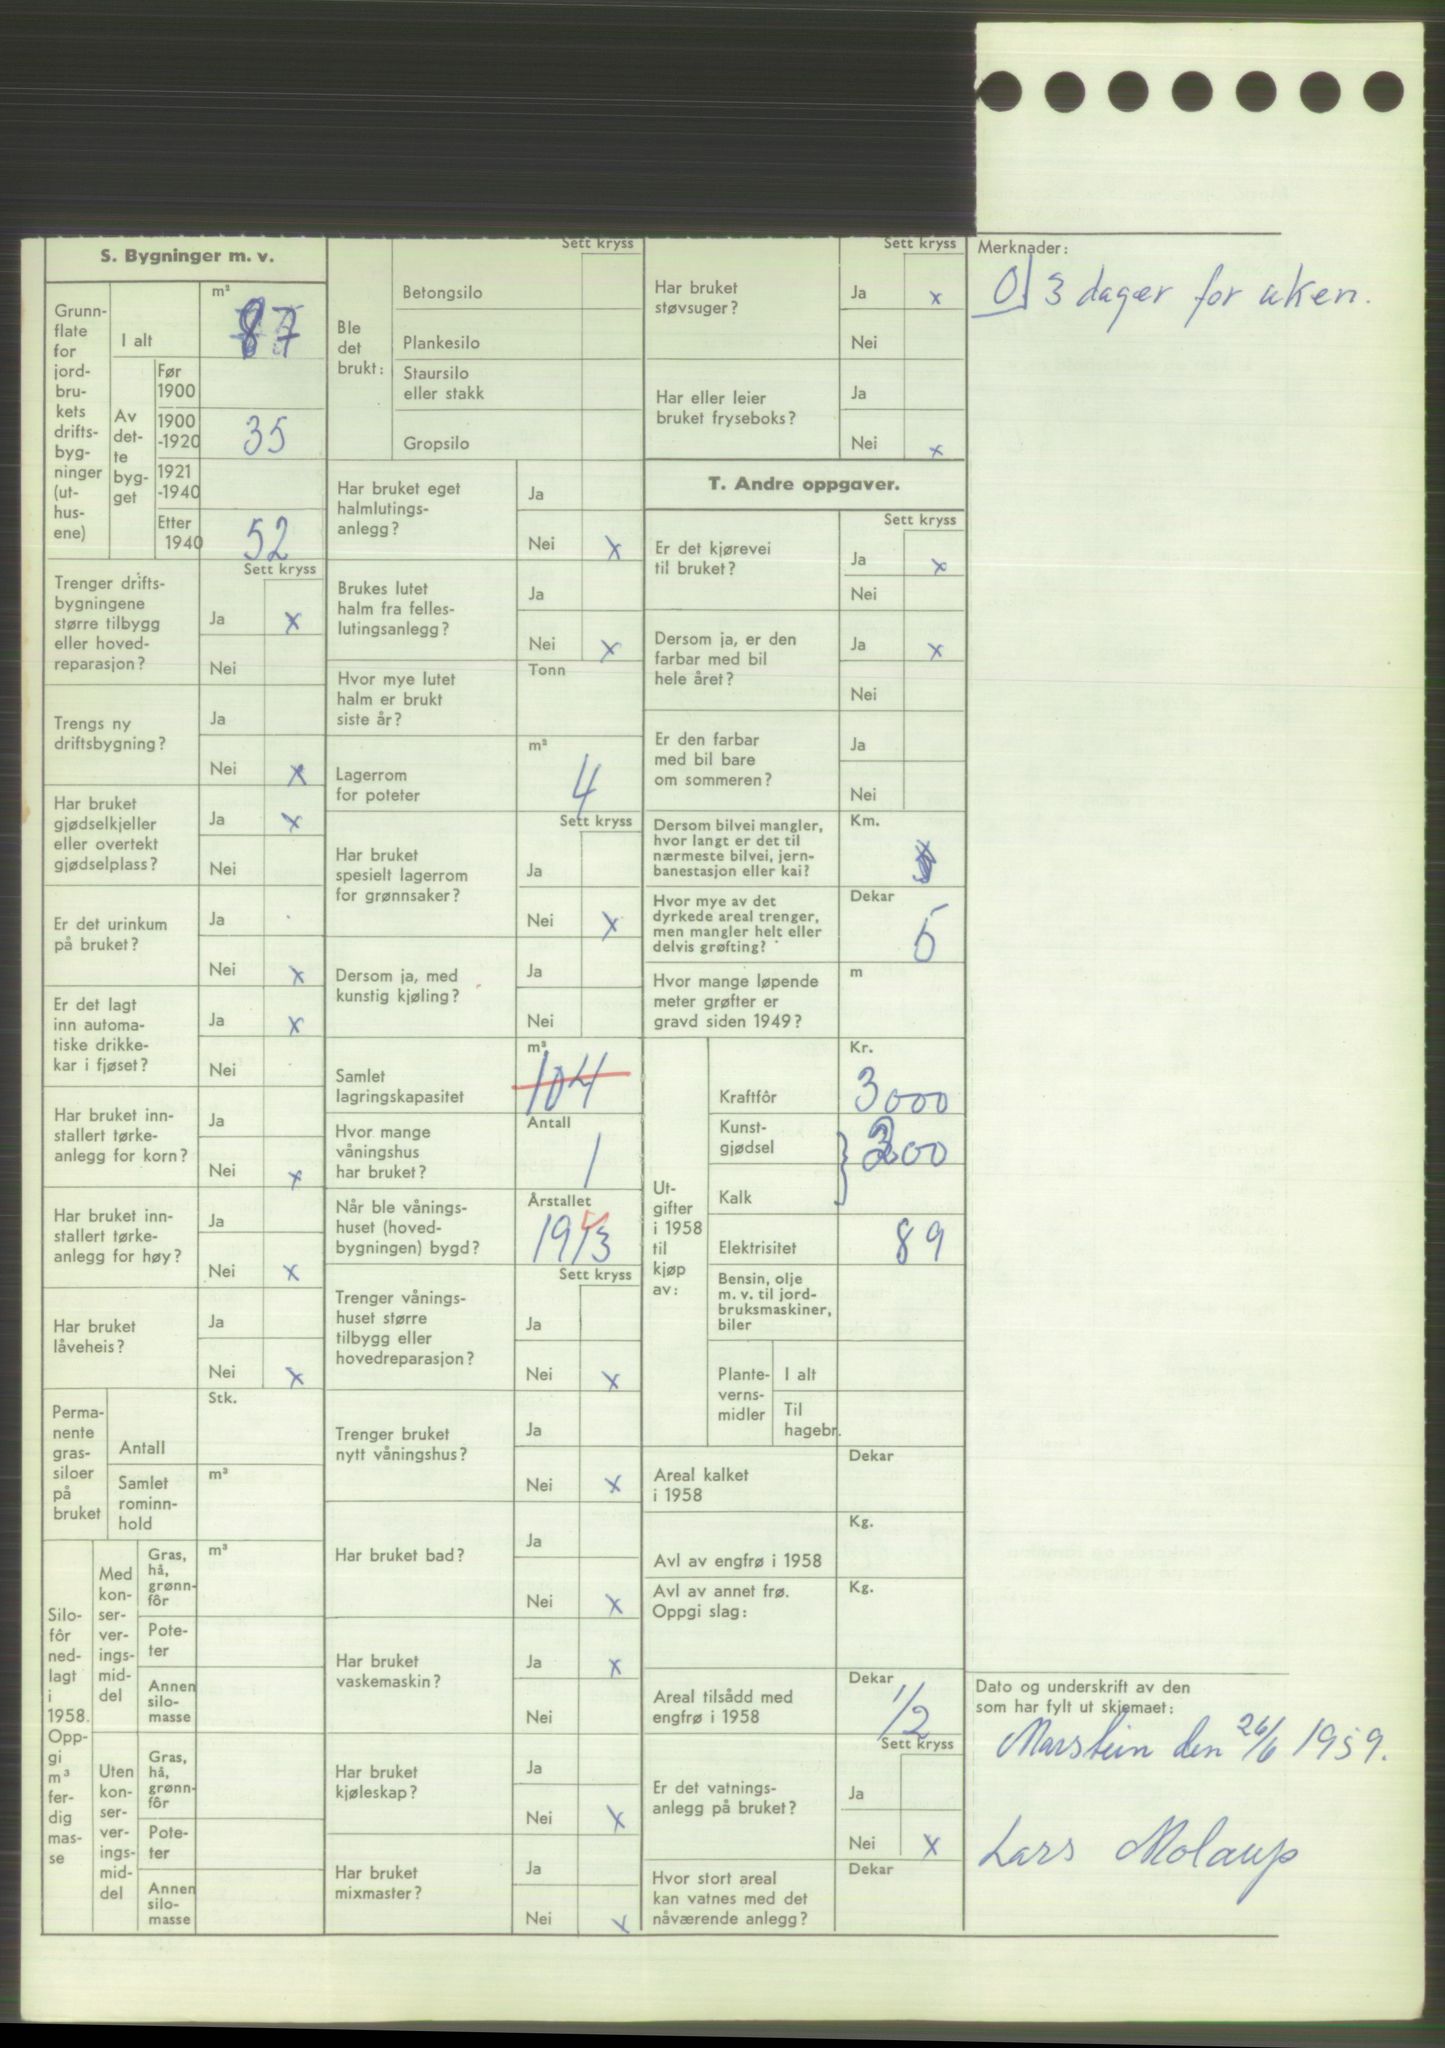 S. Bygninger m. v.
Grunn-
flate
for
jord-
bru-
kets
drifts-
byg-
ninger
(ut-
hus-
ene)
I alt
m²
87
Av
det-
te
byg-
get
Før
1900
1900
-1920
35
1921
-1940
Etter
1940
52
Sett kryss
Trenger drifts-
bygningene
større tilbygg
eller hoved-
reparasjon?
Ja x
Nei
Trengs ny
driftsbygning?
Ja
Nei x
Har bruket
gjødselkjeller
eller overtekt
gjødselplass?
Ja x
Nei
Er det urinkum
på bruket?
Ja
Nei x
Er det lagt
inn automa-
tiske drikke-
kar i fjøset?
Ja x
Nei
Har bruket inn-
stallert tørke-
anlegg for korn?
Ja
Nei x
Har bruket inn-
stallert tørke-
anlegg for høy?
Ja
Nei x
Har bruket
låveheis?
Ja
Nei x
Perma-
nente
gras-
siloer
på
bruket
Antall
Stk.
Samlet
rominn-
hold
m³
Silo-
fôr
ned-
lagt
i
1958.
Opp-
gi
m³
fer-
dig
mas-
se
Med
kon-
ser-
ver-
ings-
mid-
del
Gras,
hå,
grønn-
fôr
m³
Pote-
ter
Annen
silo-
masse
Uten
kon-
ser-
ver-
ings-
mid-
del
Gras,
hå,
grønn-
fôr
Pote-
ter
Annen
silo-
masse
Sett kryss
Ble
det
brukt:
Betongsilo
Plankesilo
Staursilo
eller stakk
Gropsilo
Har bruket eget
halmlutings-
anlegg?
Ja
Nei x
Brukes lutet
halm fra felles-
lutingsanlegg?
Ja
Nei x
Hvor mye lutet
halm er brukt
siste år?
Tonn
Lagerrom
for poteter
m³
4
Sett kryss
Har bruket
spesielt lagerrom
for grønnsaker?
Ja
Nei x
Dersom ja, med
kunstig kjøling?
Ja
Nei
Samlet
lagringskapasitet
m³
104
Hvor mange
våningshus
har bruket?
Antall
1
Når ble vånings-
huset (hoved-
bygningen) bygd?
Årstallet
Sett kryss
Trenger vånings-
huset større
tilbygg eller
hovedreparasjon?
Ja
Nei x
Trenger bruket
nytt våningshus?
Ja
Nei x
Har bruket bad?
Ja
Nei x
Har bruket
vaskemaskin?
Ja x
Nei
Har bruket
kjøleskap?
Ja
Nei x
Har bruket
mixmaster?
Ja
Nei x
Sett kryss
Har bruket
støvsuger?
Ja x
Nei
Har eller leier
bruket fryseboks?
Ja
Nei x
T. Andre oppgaver.
Sett kryss
Er det kjørevei
til bruket?
Ja x
Nei
Dersom ja, er den
farbar med bil
hele året?
Ja x
Nei
Er den farbar
med bil bare
om sommeren?
Ja
Nei
Dersom bilvei mangler,
hvor langt er det til
nærmeste bilvei, jern-
banestasjon eller kai?
Km.
Hvor mye av det
dyrkede areal trenger,
men mangler helt eller
delvis grøfting?
Dekar
5
Hvor mange løpende
meter grøfter er
gravd siden 1949?
m
Ut-
gifter
i 1958
til
kjøp
av:
Kr.
Kraftfôr
3000
Kunst-
gjødsel
Kalk
Elektrisitet
89
Bensin, olje
m. v. til jord-
bruksmaskiner,
biler
Plante-
verns-
midler
I alt
Til
hagebr.
Areal kalket
i 1958
Dekar
Avl av engfrø i 1958
Kg.
Avl av annet frø.
Oppgi slag:
Kg.
Areal tilsådd med
engfrø i 1958
Dekar
1/2
Sett kryss
Er det vatnings-
anlegg på bruket?
Ja
Nei x
Hvor stort areal
kan vatnes med det
nåværende anlegg?
Dekar
Merknader:
3 dager for uken.
Dato og underskrift av den
som har fylt ut skjemaet:
Marstein den 26/6 1959.
Lars Molaup